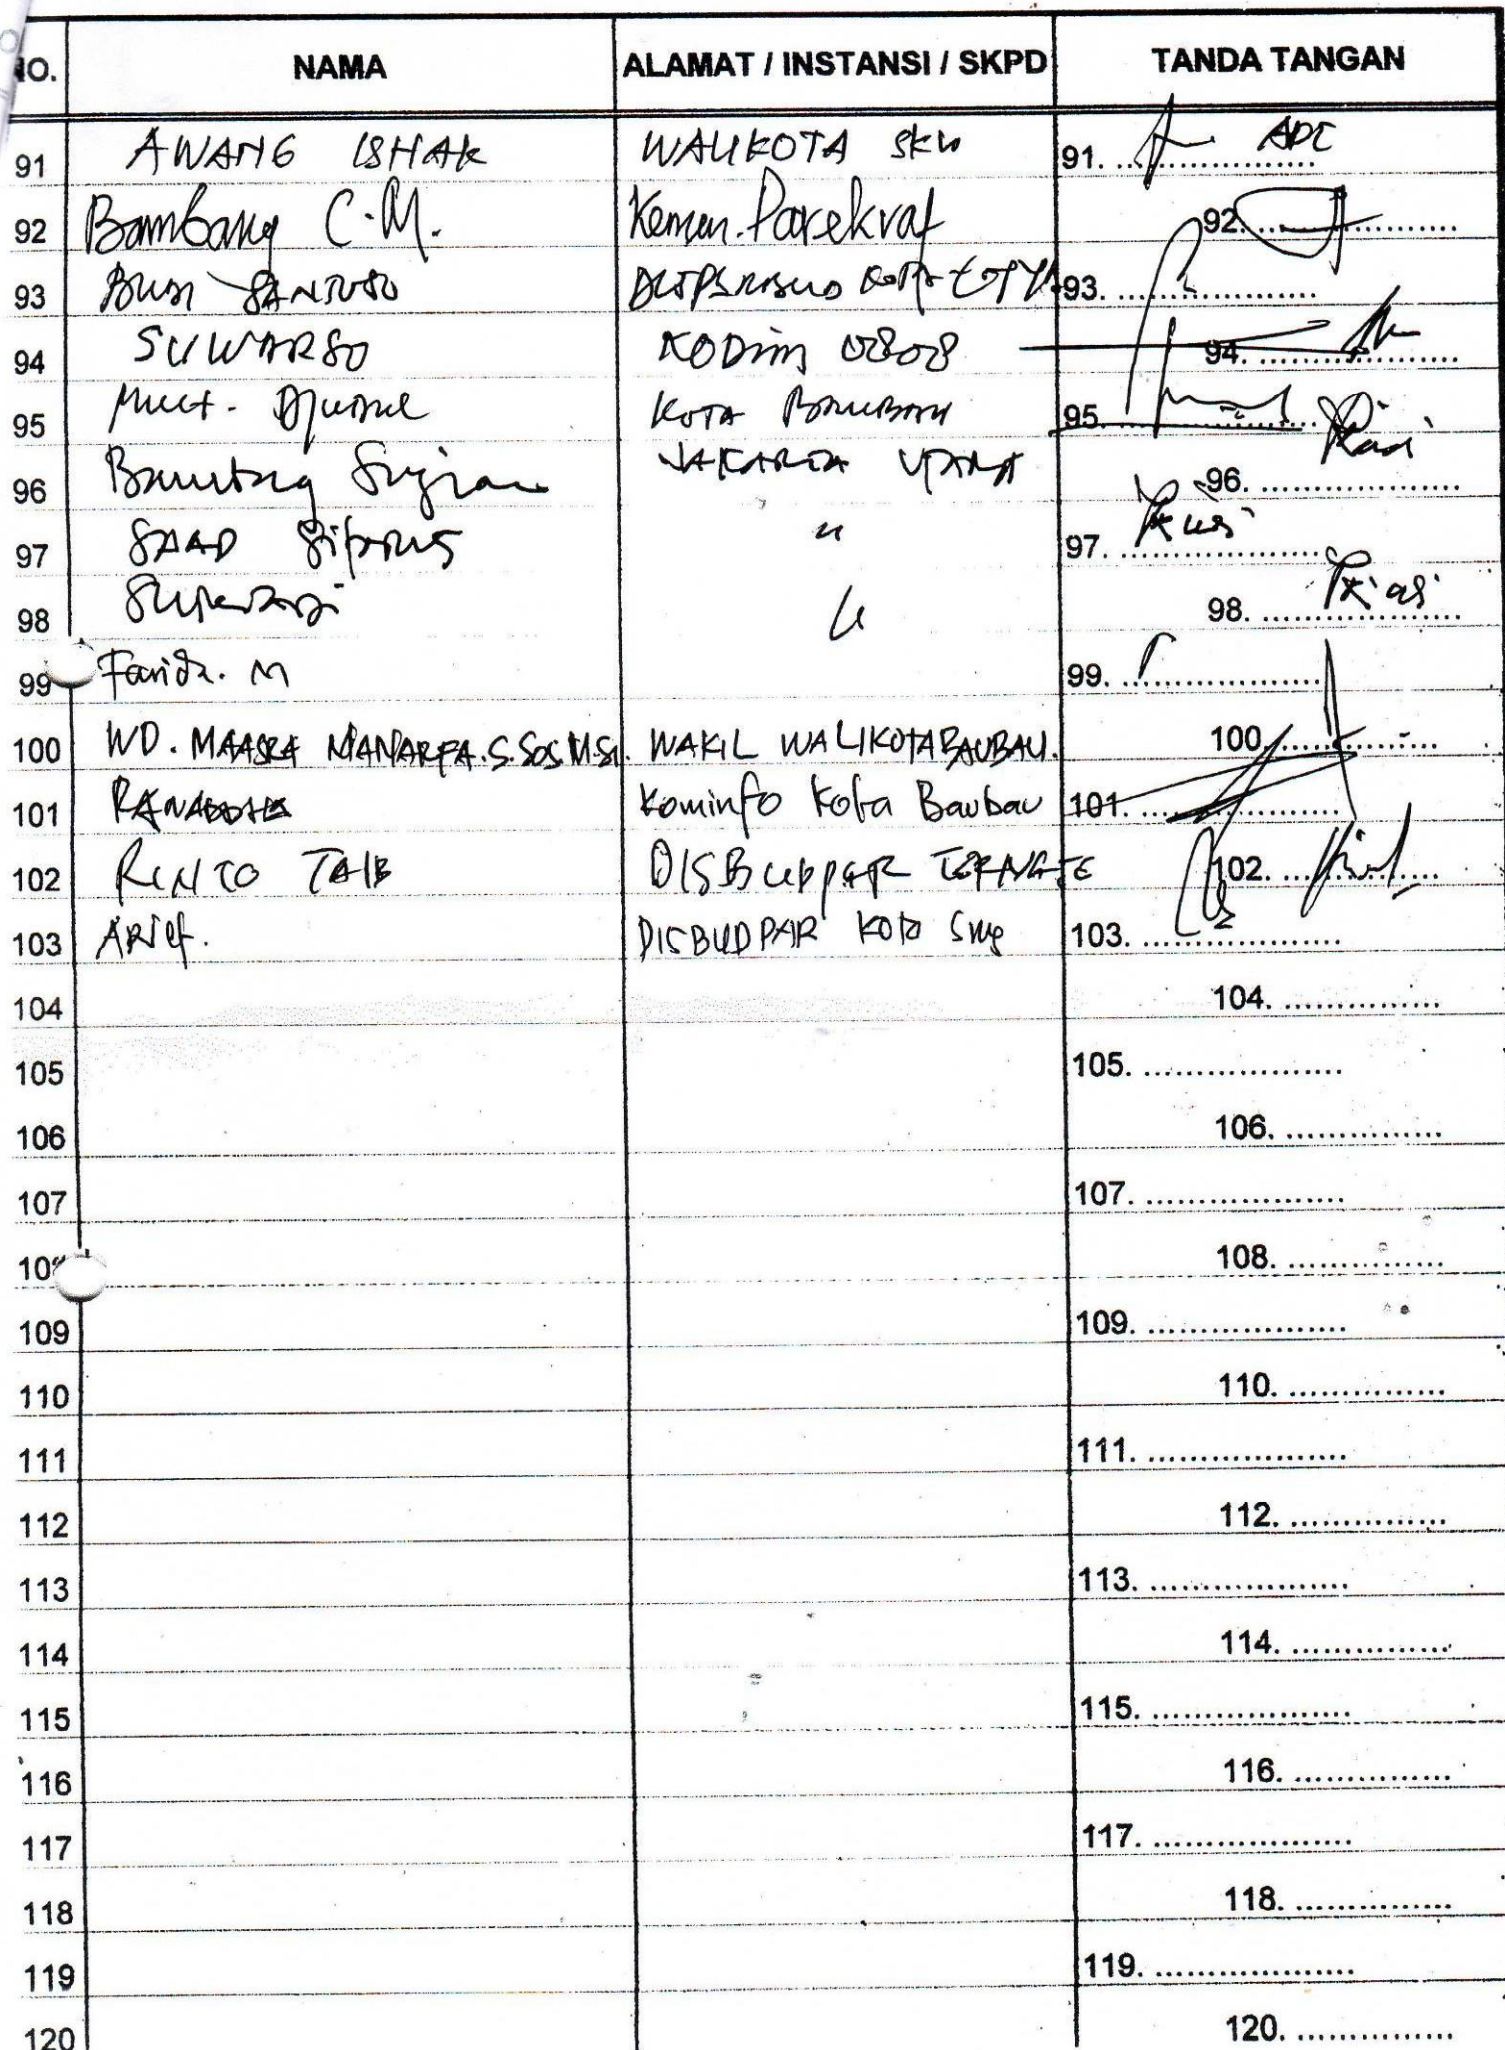 NO. NAMA ALAMAT / INSTANSI / SKPD TANDA TANGAN
91 AWANG ISHAK WALIKOTA SKW 91. .................... ADC
92 Bambang C.M. Kemen. Parekraf 92. ....................
93 BUDI SANTOSO KOTA 93. ....................
94 SUWARSO KODIM 0808 94. ....................
95 KOTA BAUBAU 95. ....................
96 Bambang JAKARTA UTARA 96. ....................
97 SAAD " 97. ....................
98 " 98. ....................
99 Farida. M 99. ....................
100 WD. MAASRA MANARFA.S.Sos.M.Si. WAKIL WALIKOTA BAUBAU. 100. ................
101 Kominfo Kota Baubau 101. ....................
102 RINTO TAIB DISBUDPAR TERNATE 102. ................
103 ARIEF. DISBUDPAR KOTA Smg 103. ....................
104 104. ................
105 105. ....................
106 106. ................
107 107. ....................
10 108. ................
109 109. ....................
110 110. ................
111 111. ....................
112 112. ................
113 113. ....................
114 114. ................
115 115. ....................
116 116. ................
117 117. ....................
118 118. ................
119 119. ....................
120 120. ................